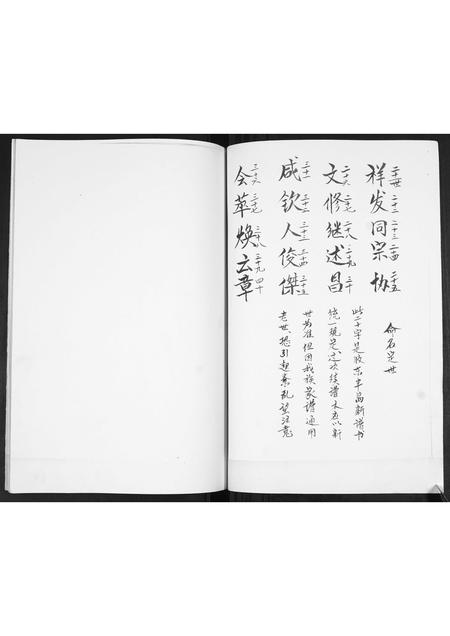 祥二十一世发二十二同二十三宗二十四协二十五
文二十六修二十七继二十八述二十九昌三十
咸三十一钦三十二人三十三俊三十四傑三十五
会三十六萃三十七焕三十八云三十九章四十
命名定世
此二十字是胶东丰昌新谱书
统一规定这次续谱本应以新
世为准但因我族家谱通用
老世恐引起紊乱望注意